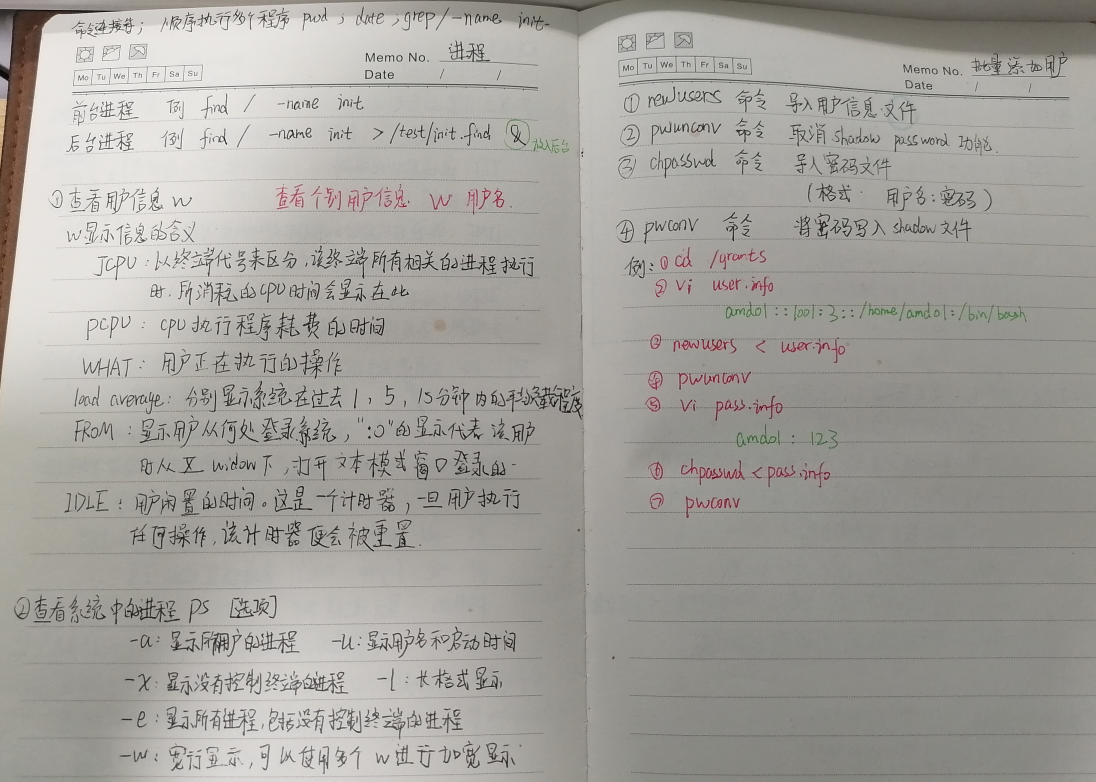 命令连接符； 顺序执行多个程序 pwd ; date ; grep / -name init
Memo No. 进程
Mo Tu We Th Fr Sa Su
Date / /
前台进程 例 find / -name init
后台进程 例 find / -name init > /test/init.find & 放入后台
①查看用户信息 w 查看个别用户信息 w 用户名.
w显示信息的含义
JCPU：以终端代号来区分,该终端所有相关的进程执行
时.所消耗的CPU时间会显示在此
PCPU：CPU执行程序耗费的时间
WHAT：用户正在执行的操作
load average：分别显示系统在过去1, 5, 15分钟内的平均负载程度
FROM：显示用户从何处登录系统,":0"的显示代表该用户
时从X widow下,打开文本模式窗口登录的.
IDLE：用户闲置的时间。这是一个计时器,一旦用户执行
任何操作,该计时器便会被重置.
②查看系统中的进程 ps [选项]
-a：显示所有用户的进程 -u：显示用户名和启动时间
-x：显示没有控制终端的进程 -l：长格式显示
-e：显示所有进程,包括没有控制终端的进程
-w：宽行显示,可以使用多个w进行加宽显示
Memo No. 批量添加用户
Mo Tu We Th Fr Sa Su
Date / /
① newusers 命令 导入用户信息文件
② pwunconv 命令 取消shadow password 功能.
③ chpasswd 命令 导入密码文件
(格式: 用户名:密码)
④ pwconv 命令 将密码写入shadow文件
例: ① cd /grants
② vi user.info
amdo1::1001:3::/home/amdo1:/bin/bash
③ newusers < user.info
④ pwunconv
⑤ vi pass.info
amdo1: 123
⑥ chpasswd < pass.info
⑦ pwconv